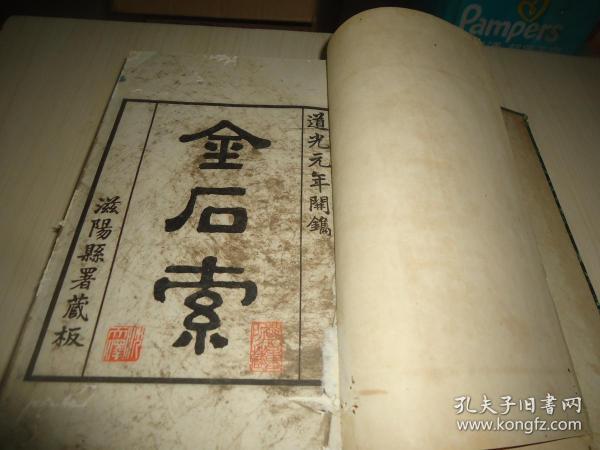 道光元年開鐫
金石索
滋陽縣署藏板
Pampers
孔夫子旧书网
www.kongfz.com